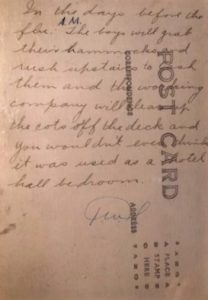 In the days before the
flu. The boys will grab
A.M.
their hammocks and
rush upstairs to
them and the
company will clean up
the cots off the deck and
you wouldn't ever think
it was used as a hotel
hall bedroom.
POST CARD
CORRESPONDENCE
ADDRESS
PLACE
STAMP
HERE